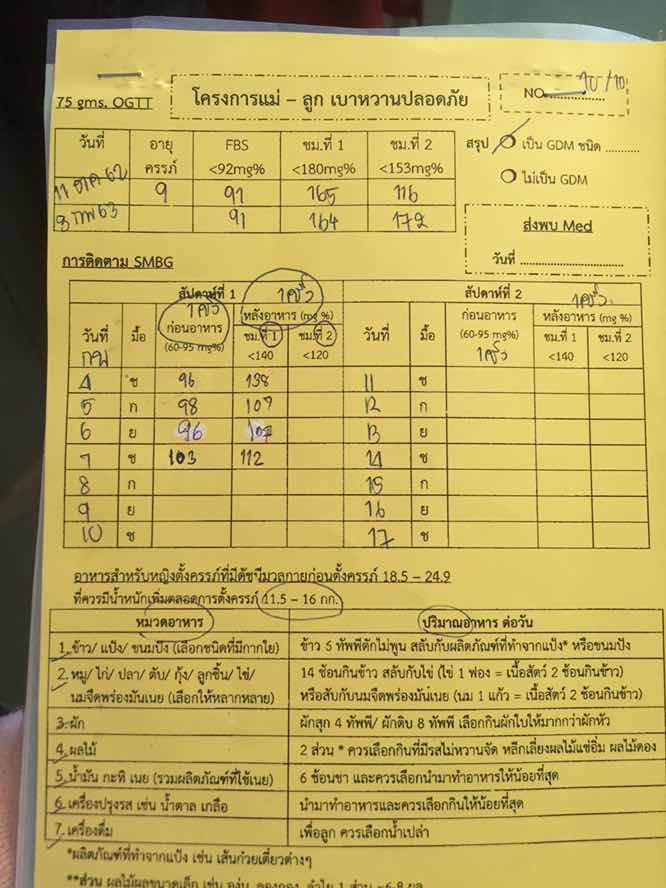 10/10
75 gms. OGTT
โครงการแม่ – ลูก เบาหวานปลอดภัย
NO...............
วันที่ อายุครรภ์ FBS <92mg% ชม.ที่ 1 <180mg% ชม.ที่ 2 <153mg%
11 ตค 62 9 91 165 116
8 กพ 63 91 164 172
สรุป เป็น GDM ชนิด ..........
ไม่เป็น GDM
ส่งพบ Med
วันที่ ..........................
การติดตาม SMBG
สัปดาห์ที่ 1 สัปดาห์ที่ 2
วันที่ กพ มื้อ ก่อนอาหาร (60-95 mg%) หลังอาหาร (mg %) ชม.ที่ 1 <140 ชม.ที่ 2 <120 วันที่ มื้อ ก่อนอาหาร (60-95 mg%) หลังอาหาร (mg %) ชม.ที่ 1 <140 ชม.ที่ 2 <120
4 ช 96 138 11 ช
5 ก 98 107 12 ก
6 ย 96 107 13 ย
7 ช 103 112 14 ช
8 ก 15 ก
9 ย 16 ย
10 ช 17 ช
อาหารสำหรับหญิงตั้งครรภ์ที่มีดัชนีมวลกายก่อนตั้งครรภ์ 18.5 – 24.9
ที่ควรมีน้ำหนักเพิ่มตลอดการตั้งครรภ์ 11.5 – 16 กก.
หมวดอาหาร ปริมาณอาหาร ต่อวัน
1. ข้าว/ แป้ง/ ขนมปัง (เลือกชนิดที่มีกากใย) ข้าว 5 ทัพพีตักไม่พูน สลับกับผลิตภัณฑ์ที่ทำจากแป้ง* หรือขนมปัง
2. หมู/ ไก่/ ปลา/ ตับ/ กุ้ง/ ลูกชิ้น/ ไข่/ 14 ช้อนกินข้าว สลับกับไข่ (ไข่ 1 ฟอง = เนื้อสัตว์ 2 ช้อนกินข้าว)
นมจืดพร่องมันเนย (เลือกให้หลากหลาย) หรือสับกับนมจืดพร่องมันเนย (นม 1 แก้ว = เนื้อสัตว์ 2 ช้อนกินข้าว)
3. ผัก ผักสุก 4 ทัพพี/ ผักดิบ 8 ทัพพี เลือกกินผักใบให้มากกว่าผักหัว
4. ผลไม้ 2 ส่วน * ควรเลือกกินที่มีรสไม่หวานจัด หลีกเลี่ยงผลไม้แช่อิ่ม ผลไม้ดอง
5. น้ำมัน กะทิ เนย (รวมผลิตภัณฑ์ที่ใช้เนย) 6 ช้อนชา และควรเลือกนำมาทำอาหารให้น้อยที่สุด
6. เครื่องปรุงรส เช่น น้ำตาล เกลือ นำมาทำอาหารและควรเลือกกินให้น้อยที่สุด
7. เครื่องดื่ม เพื่อลูก ควรเลือกน้ำเปล่า
*ผลิตภัณฑ์ที่ทำจากแป้ง เช่น เส้นก๋วยเตี๋ยวต่างๆ
**ส่วน ผลไม้ผลขนาดเล็ก เช่น องุ่น ลองกอง ลำไย 1 ส่วน =6-8 ผล